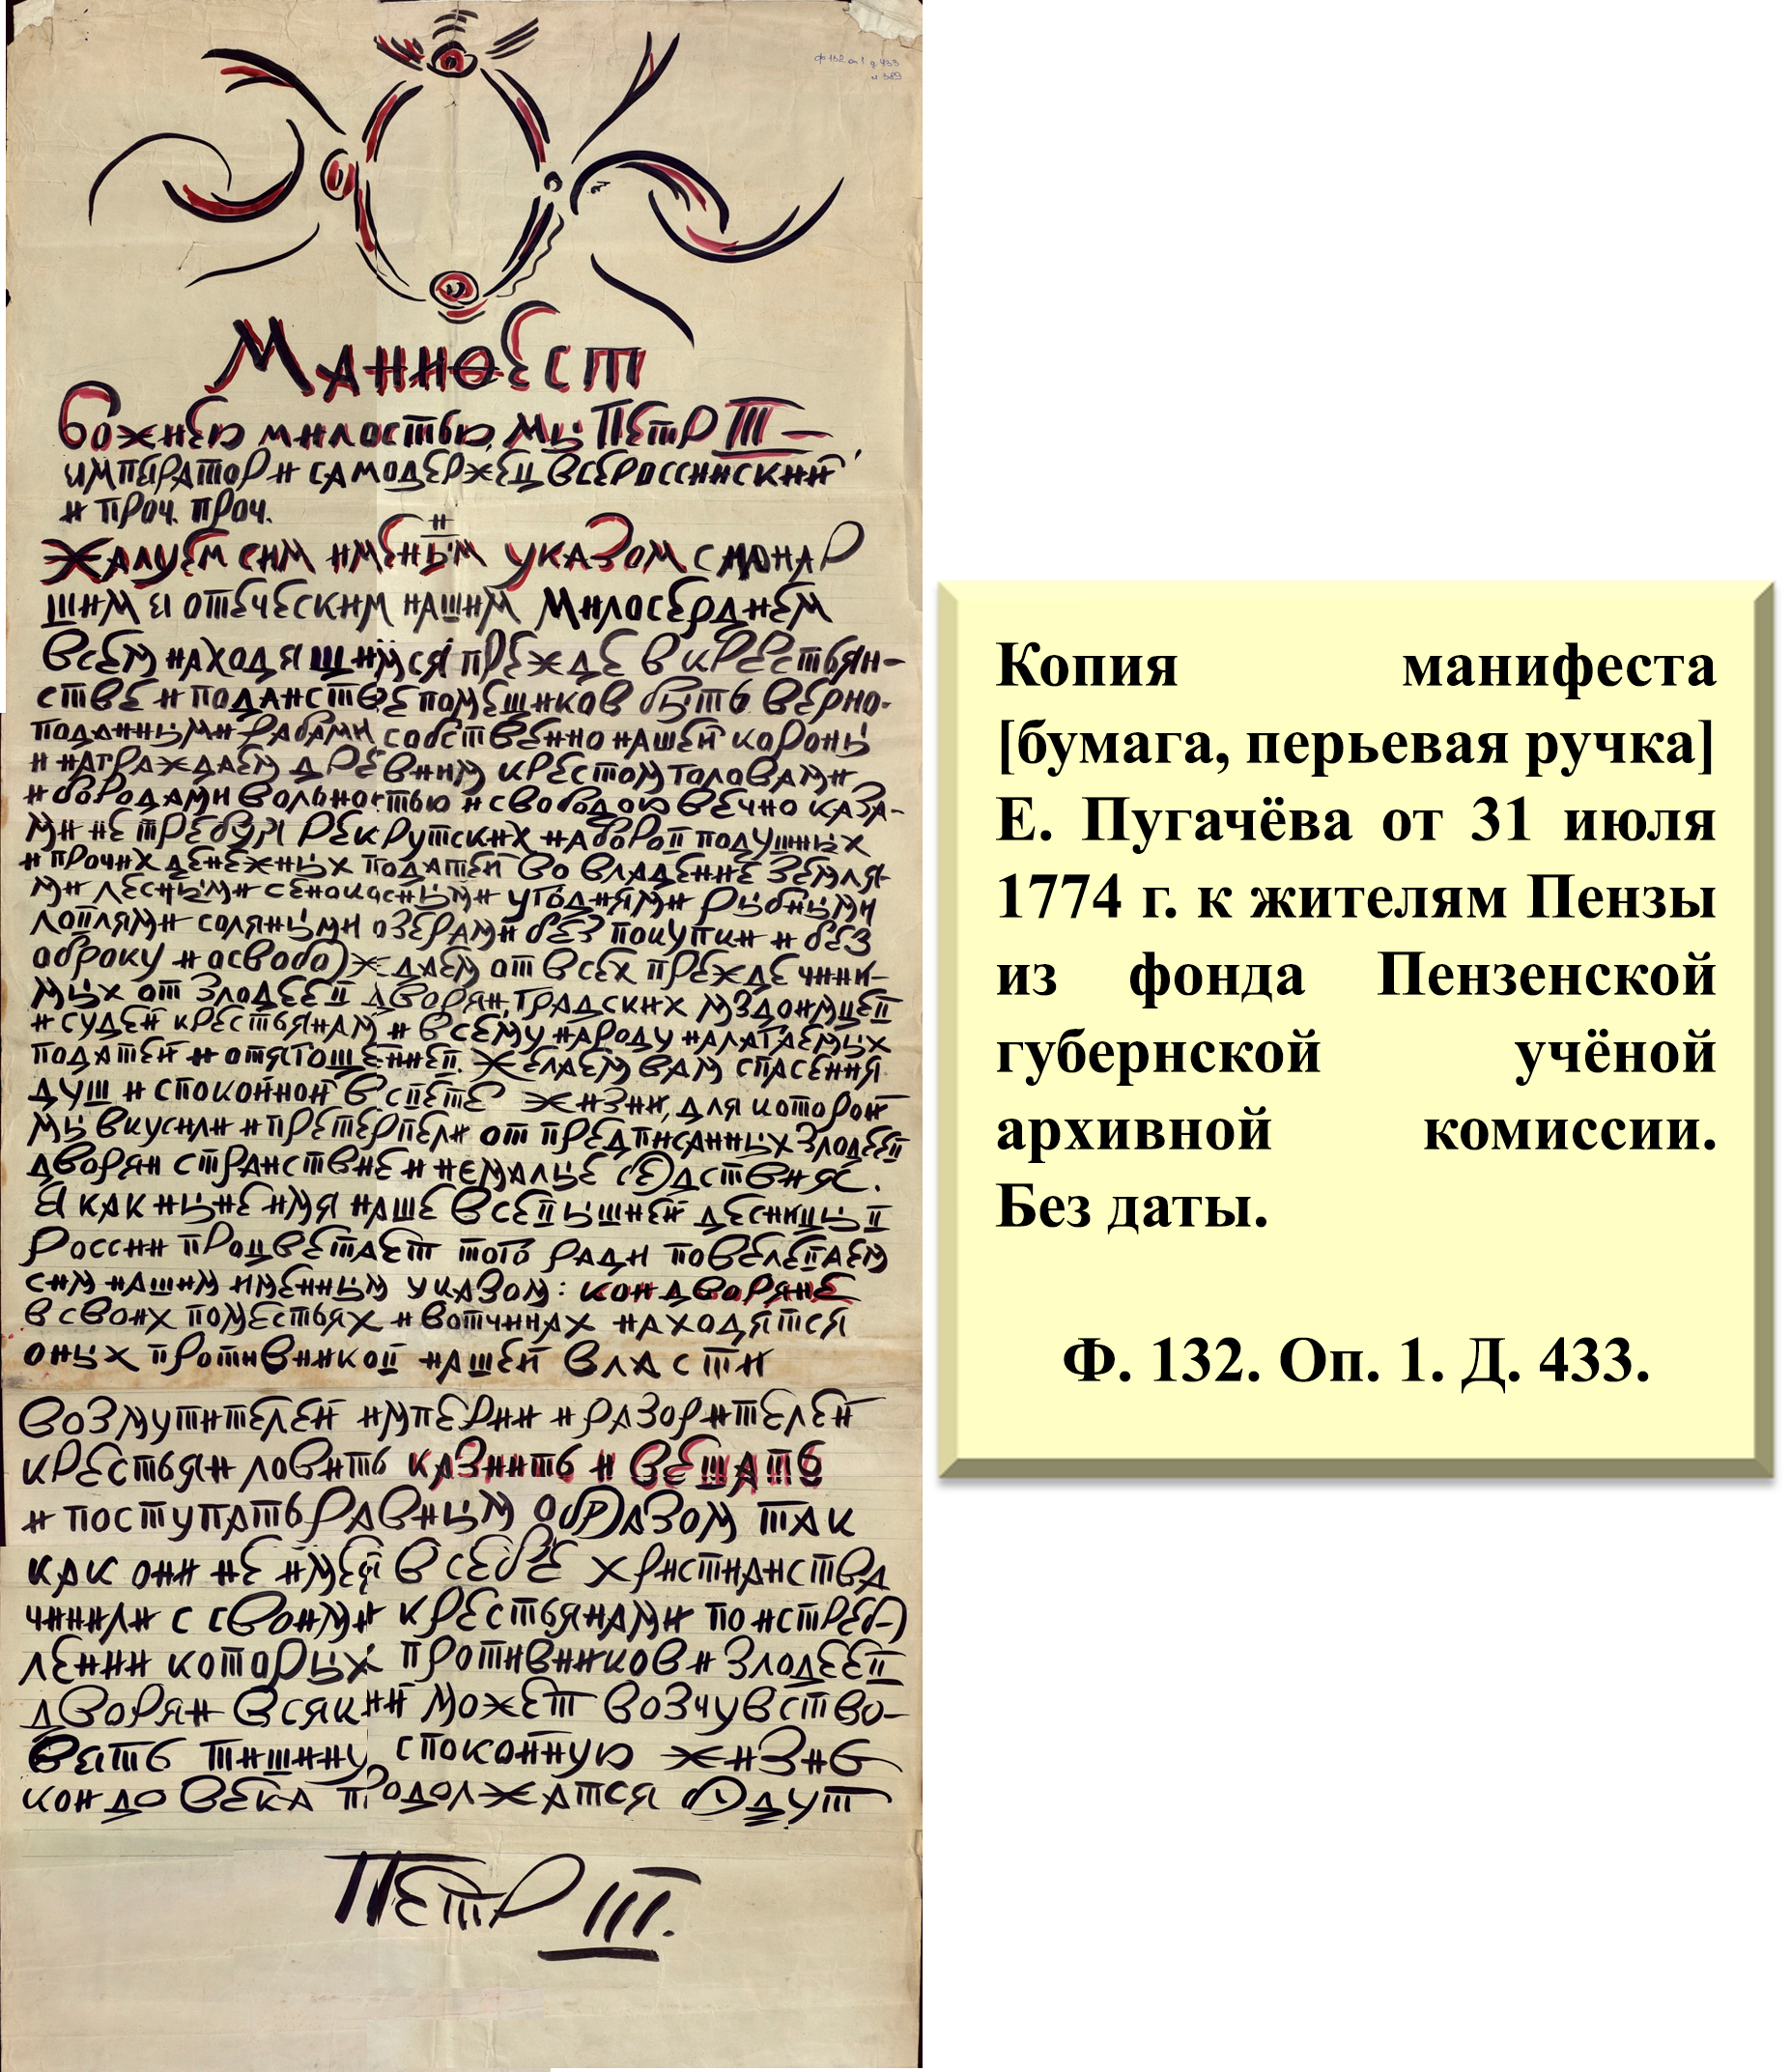 ф 132 оп 1 д 433
л 389
Манифест
Божиею милостью, мы Петр III –
император и самодержец всероссийский
и проч. проч.
Жалуем сим именным указом с монар
шим и отеческим нашим милосердием
всем находящимся прежде в крестьян-
стве и поданстве помещиков быть верно-
подаными рабами собственно нашей короны
и награждаем древним крестом головами
и бородами вольностью и свободою вечно каза-
ми не требуя рекрутских наборов подушных
и прочих денежных податей во владение земля-
ми лесными сенокосными угодиями рыбными
ловлями соляными озерами без покупки и без
аброку и асвобождаем от всех прежде чини-
мых от злодеев дворян, градских мздоимцев
и судей крестьянам и всему народу налагаемых
податей и отягощениев. Желаем вам спасения
душ и спокойной в свете жизни, для которой
мы вкусили и претерпели от предписанных злодеев
дворян странствие и немалые бедствияс.
И как ныне имя наше всевышней десницы в
России процветает того ради повелеваем
сим нашим имянным указом: кои дворяне
в своих поместьях и вотчинах находятся
оных противников нашей власти
возмутителей империи и разорителей
крестьян ловить казнить и вешать
и поступать равным образом так
как они не имея в себе христианства
чинили с своими крестьянами по истреб-
лении которых противников и злодеев
дворян всякий может возчувство-
вать тишину спокойную жизнь
кои до века продолжатся будут
Петр III.
Копия манифеста
[бумага, перьевая ручка]
Е. Пугачёва от 31 июля
1774 г. к жителям Пензы
из фонда Пензенской
губернской учёной
архивной комиссии.
Без даты.
Ф. 132. Оп. 1. Д. 433.